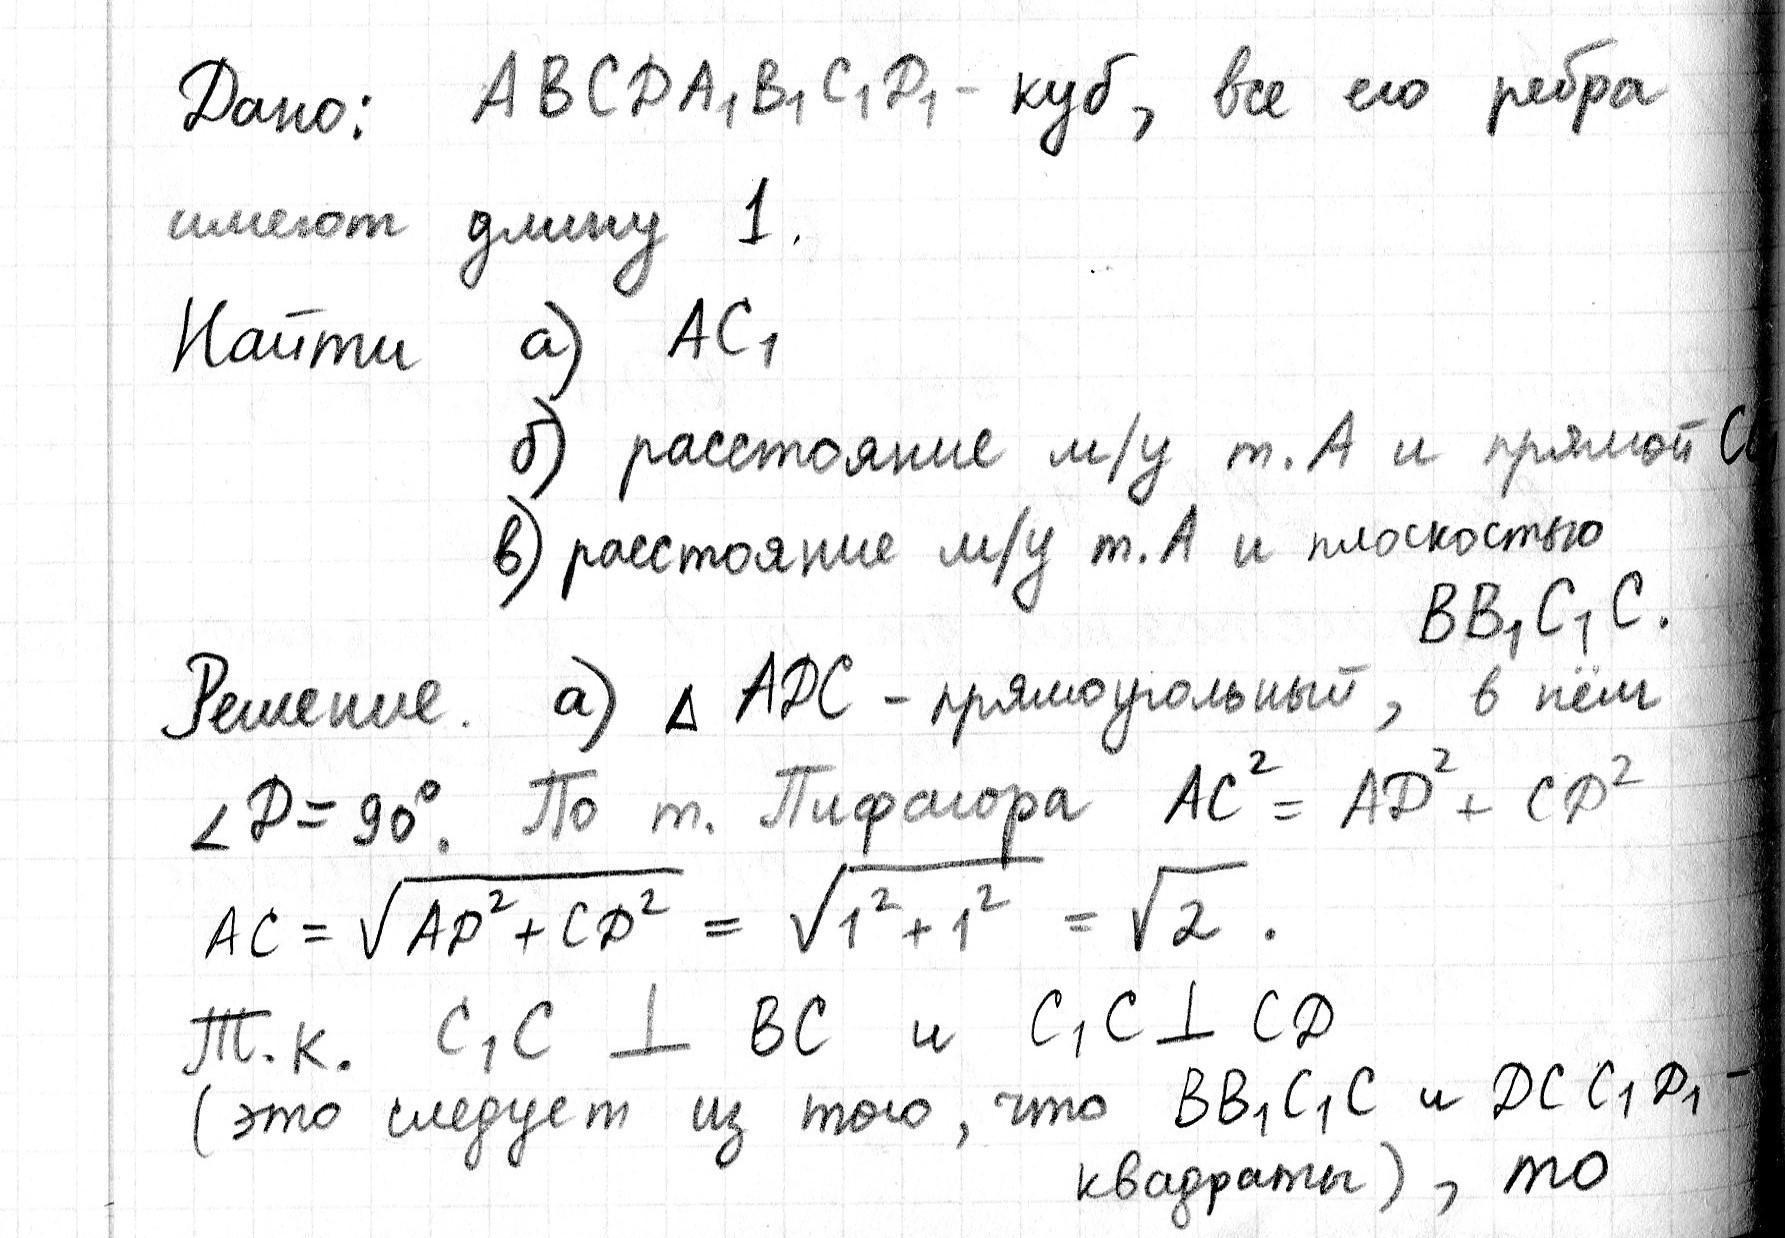 Дано: ABCDA₁B₁C₁D₁ - куб, все его ребра
имеют длину 1.
Найти а) AC₁
б) расстояние м/у т. А и прямой
в) расстояние м/у т. А и плоскостью
BB₁C₁C.
Решение. а) Δ ADC - прямоугольный, в нём
∠D = 90°. По т. Пифагора AC² = AD² + CD²
AC = √(AD² + CD²) = √(1² + 1²) = √2 .
Т.к. C₁C ⊥ BC и C₁C ⊥ CD
(это следует из того, что BB₁C₁C и DCC₁D₁ -
квадраты), то